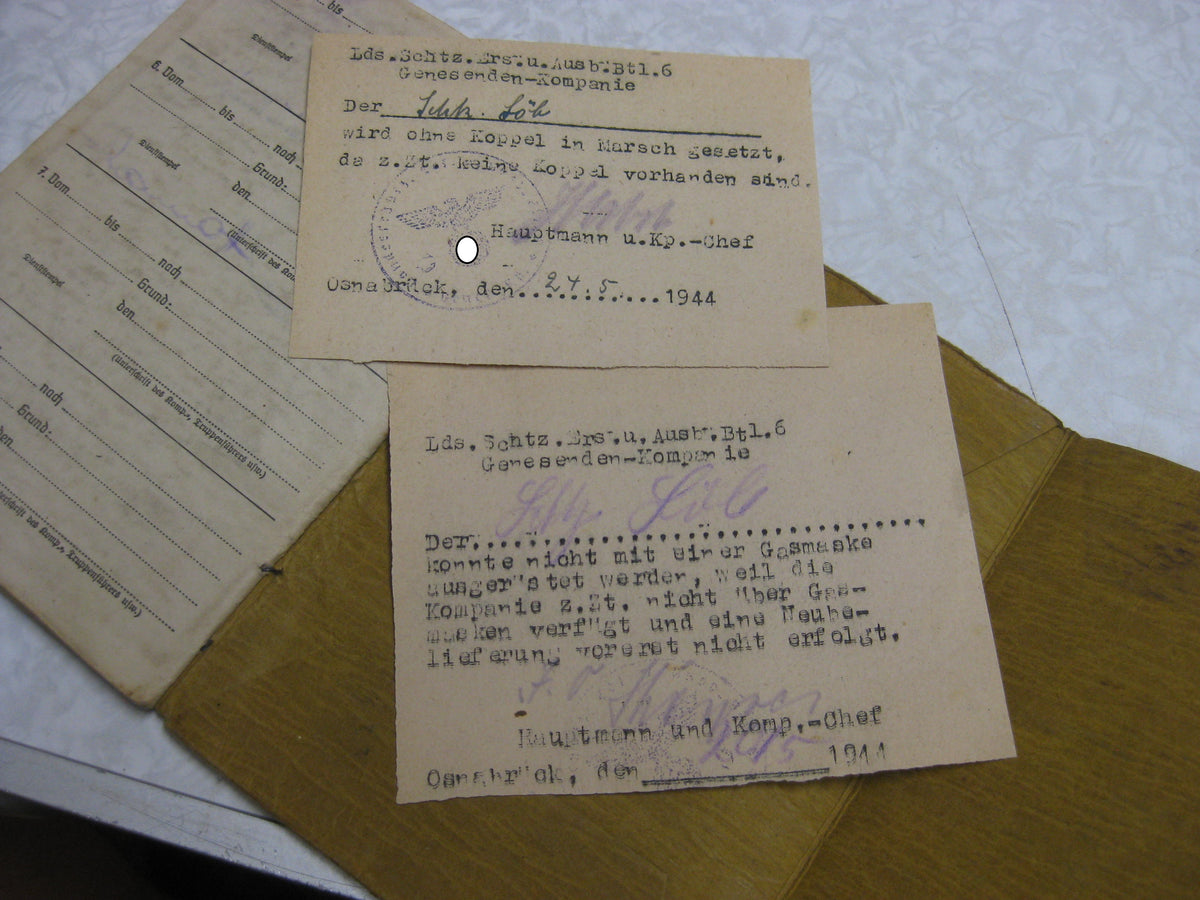 bis
Dienststempel
6. Vom
bis
nach
Grund:
den
Dienststempel
(Unterschrift des Kom
7. Vom
bis
nach
Grund:
den
Dienststempel
(Unterschrift des Komp., Truppenführers usw.)
nach
Grund:
den
Unterschrift des Komp., Truppenführers usw.)
Lds.Schtz.Ers.u.Ausb.Btl.6
Genesenden-Kompanie
Der Schtz. Löb
wird ohne Koppel in Marsch gesetzt,
da z.Zt. keine Koppel vorhanden sind.
Hauptmann u.Kp.-Chef
Osnabrück, den 24.5. 1944
Lds.Schtz.Ers.u.Ausb.Btl.6
Genesenden-Kompanie
Schtz Löb
Der
konnte nicht mit einer Gasmaske
ausgerüstet werden, weil die
Kompanie z.Zt. nicht über Gas-
masken verfügt und eine Neube-
lieferung vorerst nicht erfolgt.
Hauptmann und Komp.-Chef
Osnabrück, den 1944